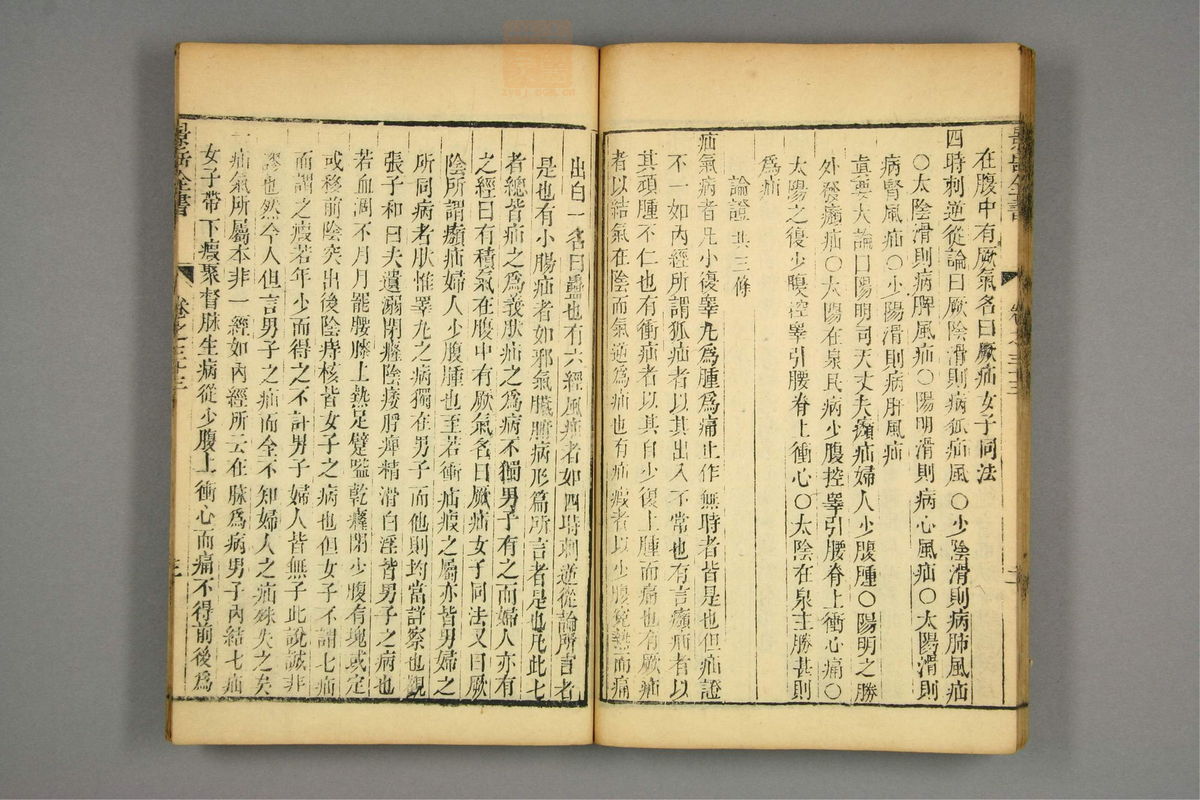 在腹中有厥氣名曰厥疝女子同法
四時刺逆從論曰厥陰滑則病狐疝風〇少陰滑則病肺風疝
〇太陰滑則病脾風疝〇陽明滑則病心風疝〇太陽滑則
病腎風疝〇少陽滑則病肝風疝
眞要大論曰陽明司天丈夫㿗疝婦人少腹腫〇陽明之勝
外發㿗疝〇太陽在泉民病少腹控睪引腰脊上衝心痛〇
太陽之復少腹控睪引腰脊上衝心〇太陰在泉主勝甚則
爲疝
論證 共三條
疝氣病者凡小復睪丸爲腫爲痛止作無時者皆是也但疝證
不一如內經所謂狐疝者以其出入不常也有言㿗疝者以
其頑腫不仁也有衝疝者以其自少復上腫而痛也有厥疝
者以結氣在陰而氣逆爲疝也有疝瘕者以少腹寃熱而痛
景岳全書 卷之三十三
出白一名曰蠱也有六經風疝者如四時刺逆從論所言者
是也有小腸疝者如邪氣臟腑病形篇所言者是也凡此七
者總皆疝之爲義肰疝之爲病不獨男子有之而婦人亦有
之經曰有積氣在腹中有厥氣名曰厥疝女子同法又曰厥
陰所謂㿗疝婦人少腹腫也至若衝疝瘕之屬亦皆男婦之
所同病者肰惟睪丸之病獨在男子而他則均當詳察也觀
張子和曰夫遺溺閉癃陰痿脬痺精滑白淫皆男子之病也
若血涸不月月罷腰膝上熱足躄嗌乾癃閉少腹有塊或定
或移前陰突出後陰痔核皆女子之病也但女子不謂七疝
而謂之瘕若年少而得之不計男子婦人皆無子此說誠非
謬也然今人但言男子之疝而全不知婦人之疝殊失之矣
一疝氣所屬本非一經如內經所云在脉爲病男子內結七疝
女子帶下瘕聚督脉生病從少腹上衝心而痛不得前後爲
景岳全書 卷之三十三